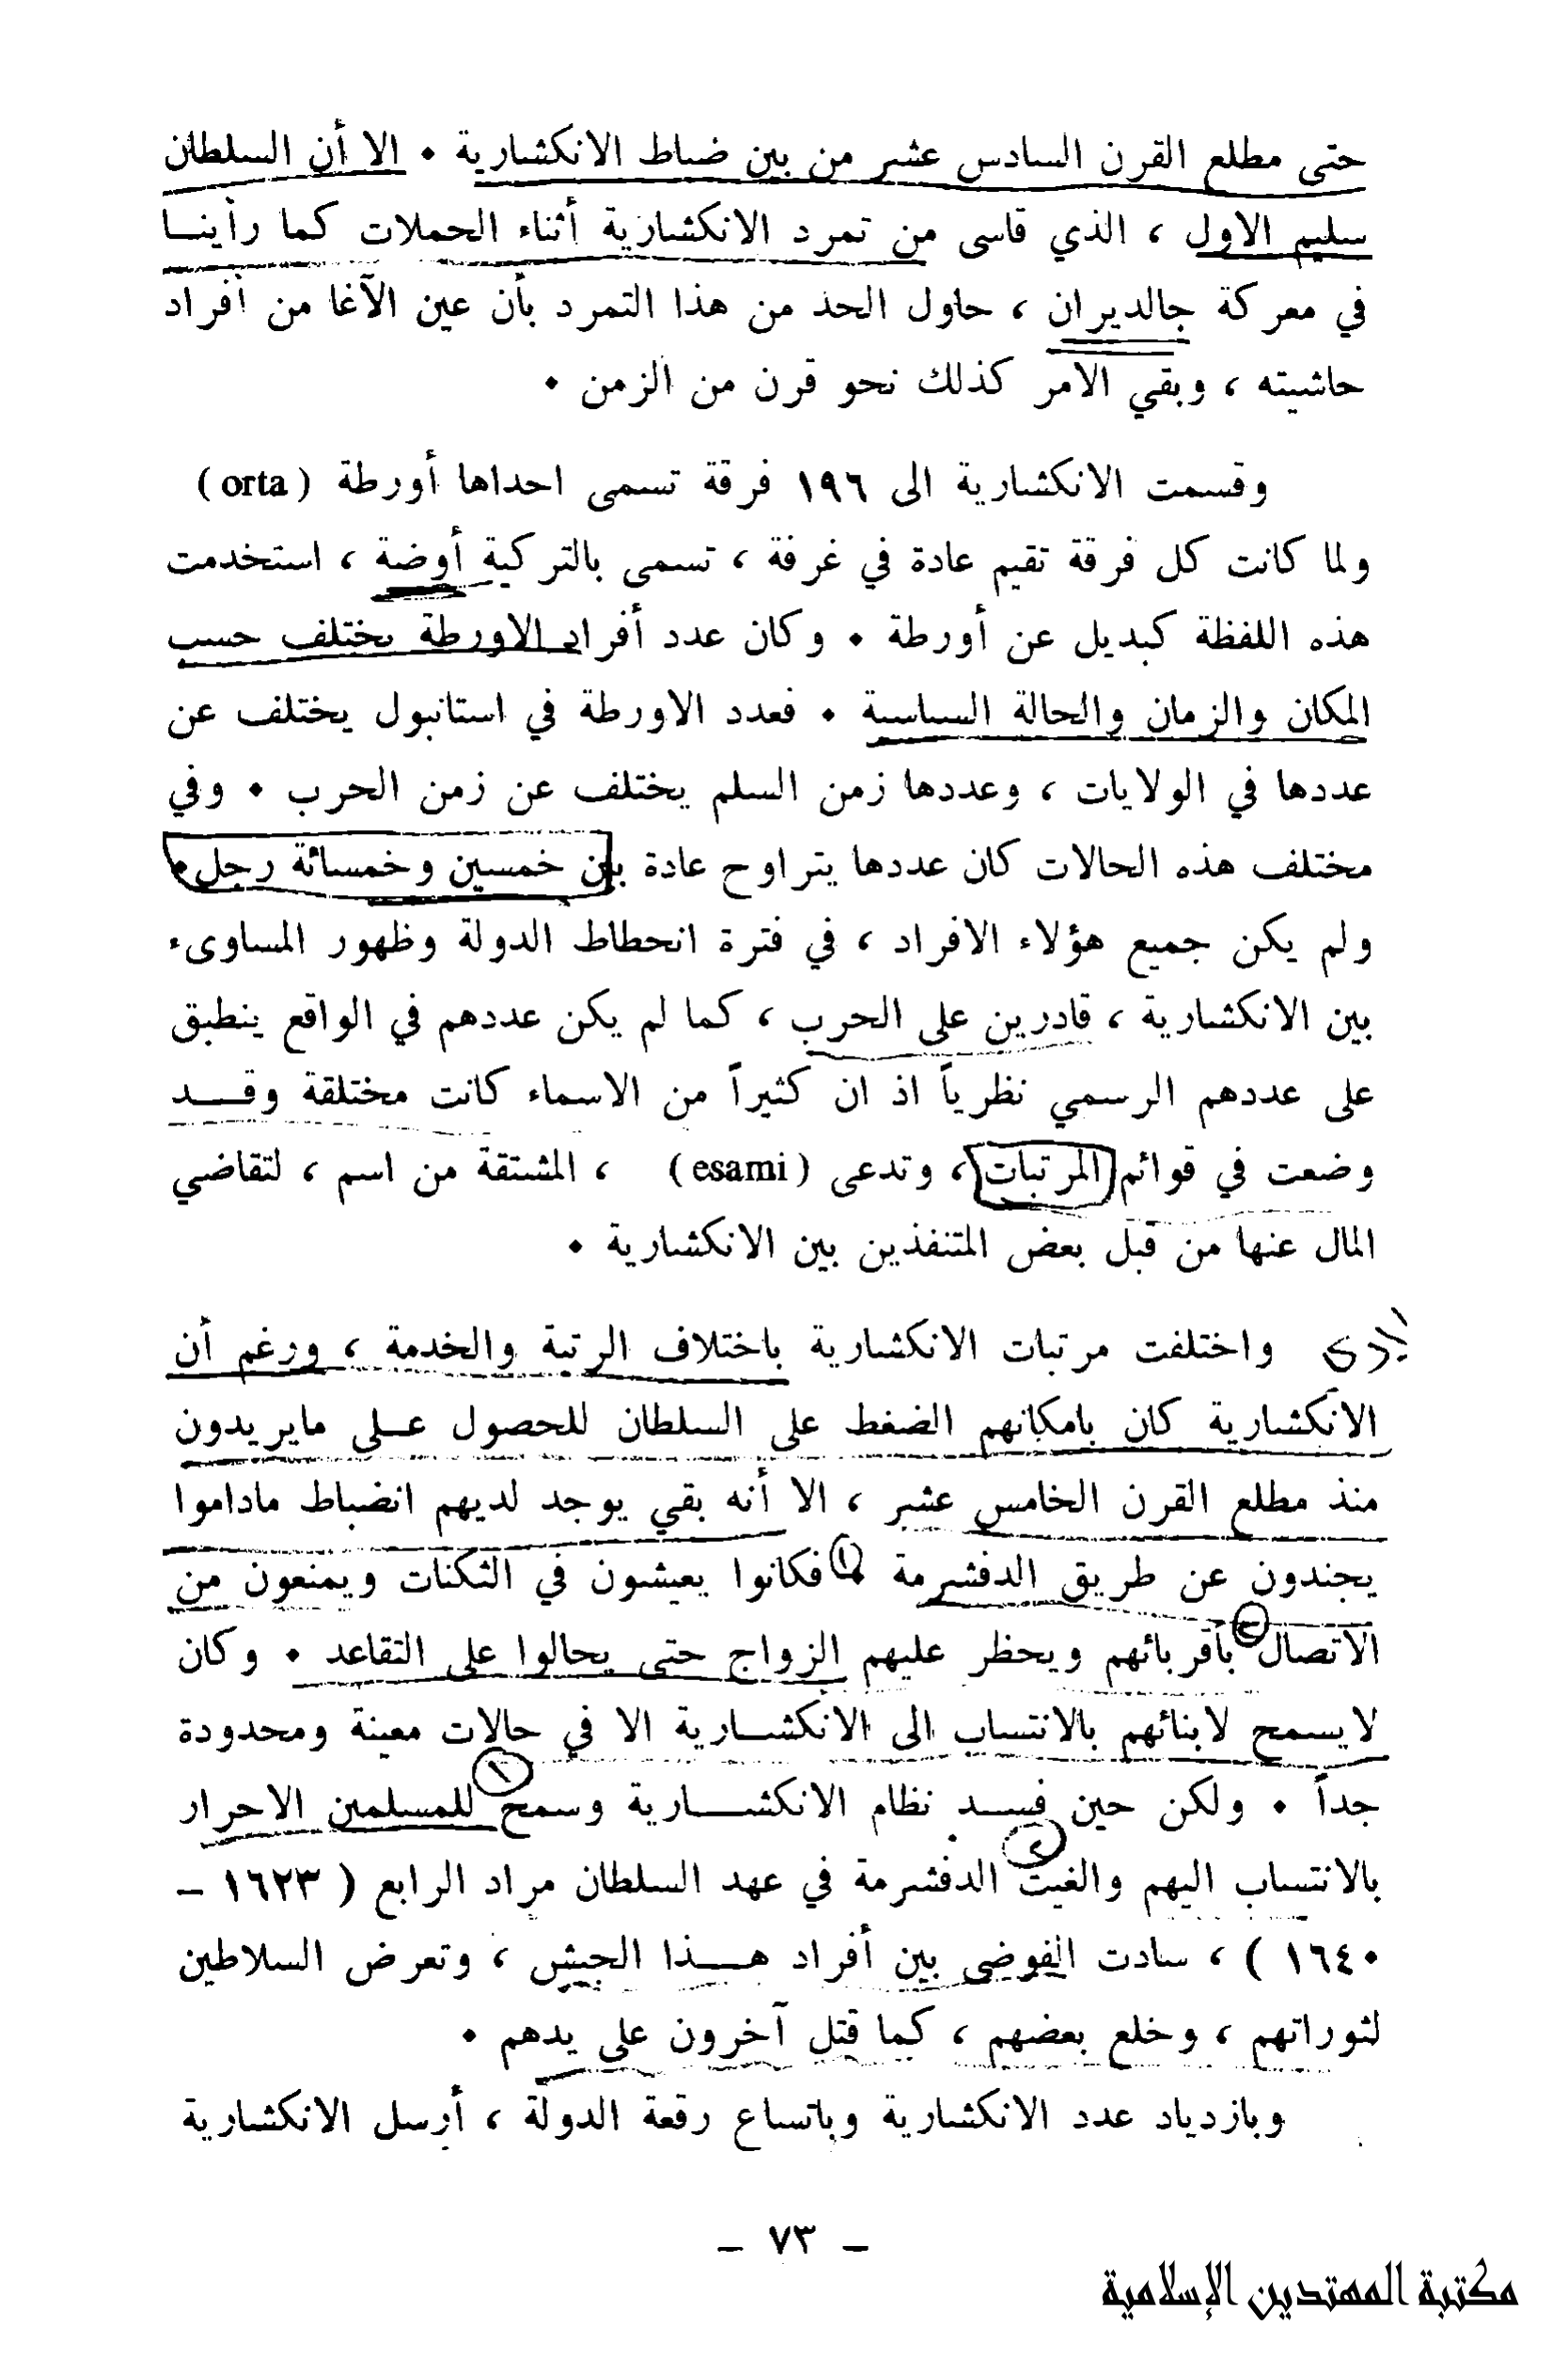 حتى مطلع القرن السادس عشر من بين ضباط الانكشارية ٠ الا أن السلطان
سليم الاول ، الذي قاسى من تمرد الانكشارية أثناء الحملات كما رأينا
في معركة جالديران ، حاول الحد من هذا التمرد بأن عين الآغا من أفراد
حاشيته ، وبقي الامر كذلك نحو قرن من الزمن ٠
وقسمت الانكشارية الى ١٩٦ فرقة تسمى احداها أورطة (orta)
ولما كانت كل فرقة تقيم عادة في غرفة ، تسمى بالتركية أوضة ، استخدمت
هذه اللفظة كبديل عن أورطة ٠ وكان عدد أفراد الاورطة يختلف حسب
المكان والزمان والحالة السياسية ٠ فعدد الاورطة في استانبول يختلف عن
عددها في الولايات ، وعددها زمن السلم يختلف عن زمن الحرب ٠ وفي
مختلف هذه الحالات كان عددها يتراوح عادة بين خمسين وخمسائة رجل ٠
ولم يكن جميع هؤلاء الافراد ، في فترة انحطاط الدولة وظهور المساوىء
بين الانكشارية ، قادرين على الحرب ، كما لم يكن عددهم في الواقع ينطبق
على عددهم الرسمي نظرياً اذ ان كثيراً من الاسماء كانت مختلقة وقد
وضعت في قوائم المرتبات ، وتدعى (esami) ، المشتقة من اسم ، لتقاضي
المال عنها من قبل بعض المتنفذين بين الانكشارية ٠
واختلفت مرتبات الانكشارية باختلاف الرتبة والخدمة ، ورغم أن
الانكشارية كان بامكانهم الضغط على السلطان للحصول على مايريدون
منذ مطلع القرن الخامس عشر ، الا أنه بقي يوجد لديهم انضباط ماداموا
يجندون عن طريق الدفشرمة ٠ ١ فكانوا يعيشون في الثكنات ويمنعون من
الاتصال ٢ بأقربائهم ويحظر عليهم الزواج حتى يحالوا على التقاعد ٠ وكان
لايسمح لابنائهم بالانتساب الى الانكشارية الا في حالات معينة ومحدودة
جداً ٠ ولكن حين فسد نظام الانكشارية وسمح ١ للمسلمين الاحرار
بالانتساب اليهم والغيت ٢ الدفشرمة في عهد السلطان مراد الرابع ( ١٦٢٣ –
١٦٤٠ ) ، سادت الفوضى بين أفراد هذا الجيش ، وتعرض السلاطين
لثوراتهم ، وخلع بعضهم ، كما قتل آخرون على يدهم ٠
وبازدياد عدد الانكشارية وباتساع رقعة الدولة ، أرسل الانكشارية
– ٧٣ –
مكتبة المهتدين الإسلامية